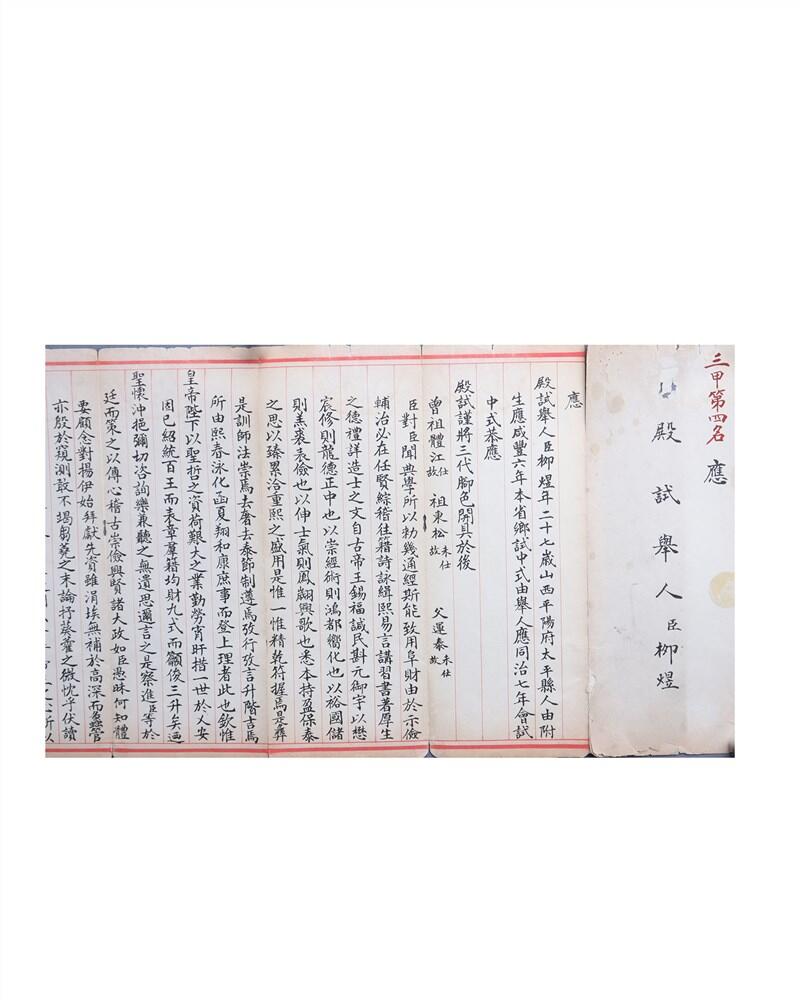 三甲第四名
應
殿試舉人臣柳煜
應
殿試舉人臣柳煜年二十七歲山西平陽府太平縣人由附
生應咸豐六年本省鄉試中式由舉人應同治七年會試
中式恭應
殿試謹將三代腳色開具於後
曾祖體江仕故 祖東松未仕故 父運泰未仕故
臣對臣聞典學所以勅幾通經斯能致用阜財由於示儉
輔治必在任賢綜稽往籍詩詠緝熙易言講習書著厚生
之德禮詳造士之文自古帝王錫福諴民斟元御宇以懋
宸修則龍德正中也以崇經術則鴻都嚮化也以裕國儲
則羔裘表儉也以伸士氣則鳳翽興歌也悉本持盈保泰
之思以臻累洽重熙之盛用是惟一惟精乾符握焉是彝
是訓師法崇焉去奢去泰節制遵焉攷行攷言升階吉焉
所由熙春泳化函夏翔和康庶事而登上理者此也欽惟
皇帝陛下以聖哲之資荷艱大之業勤勞宵旰措一世於乂安
因已紹統百王而表章羣籍均財九式而籲俊三升矣迺
聖懷沖挹彌切咨詢樂兼聽之無遺思邇言之是察進臣等於
廷而策之以傳心稽古崇儉興賢諸大政如臣愚昧何知體
要顧念對揚伊始拜獻先資雖涓埃無補於高深而蠡管
亦殷於窺測敢不竭芻蕘之末論抒葵藿之微忱乎伏讀